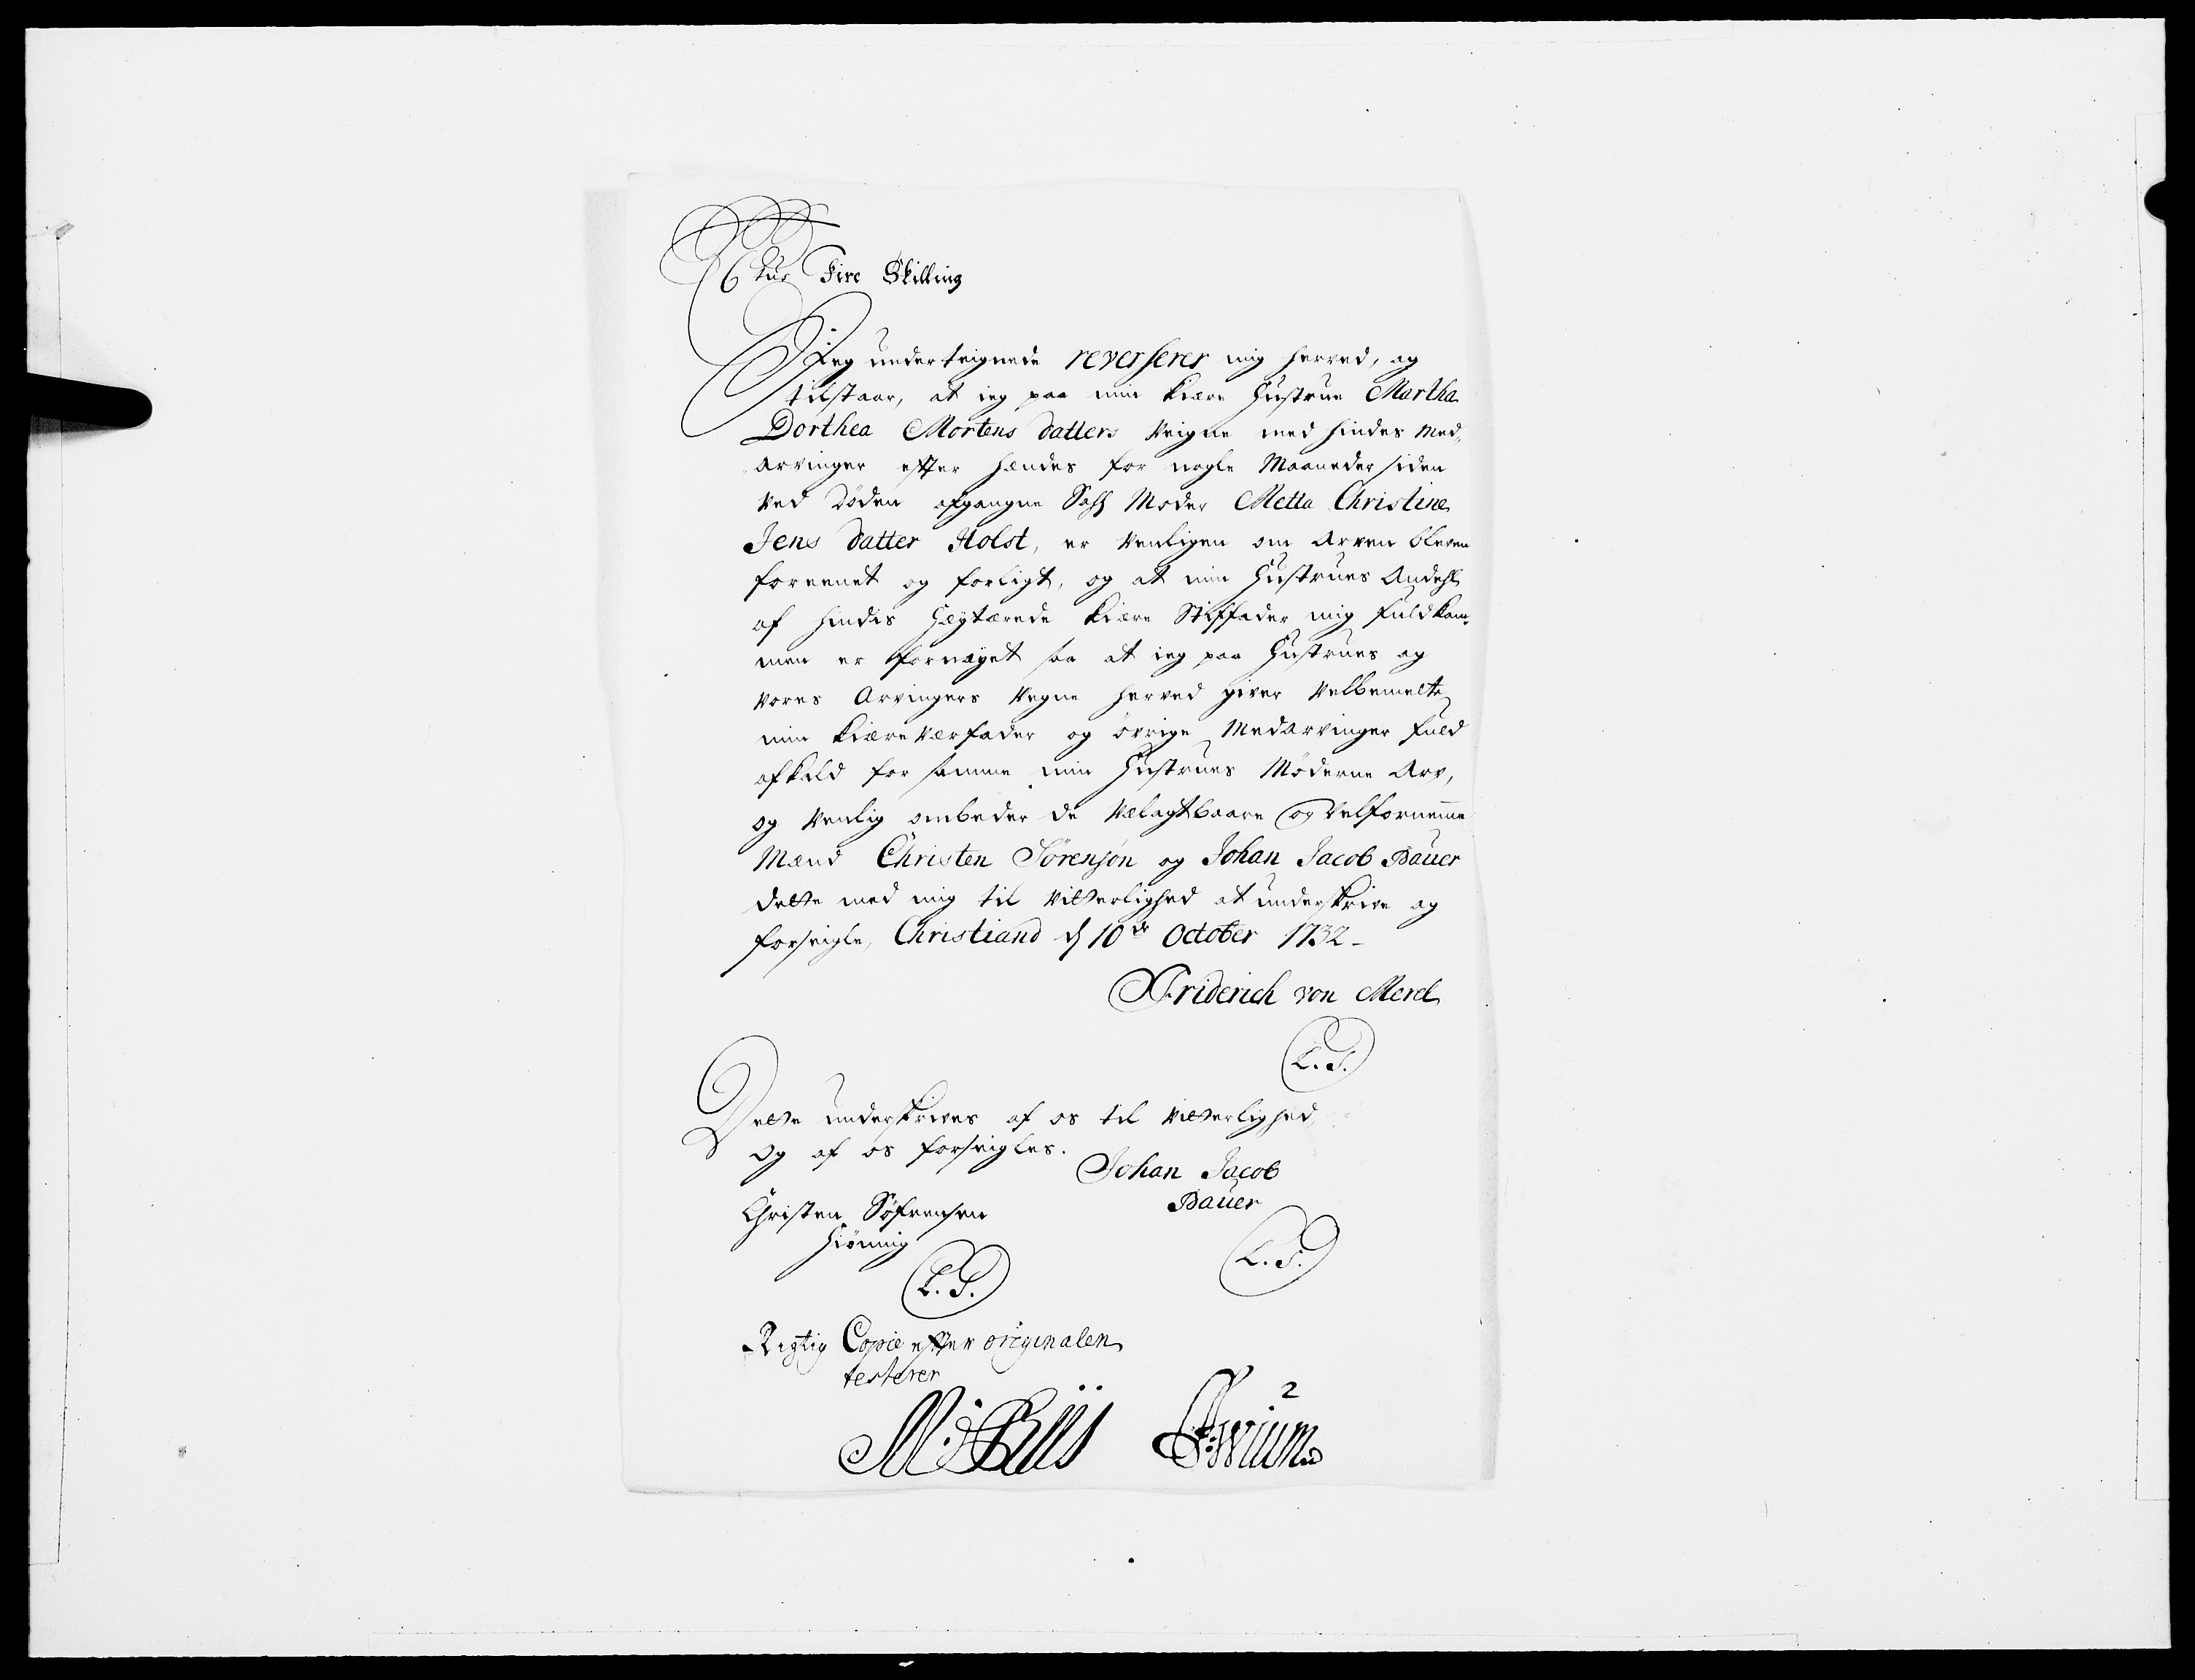 6 tus Fire Skilling
Jeg underteignede reverserer mig herved, og
tilstaar, at ieg paa min kiære Hustrue Martha
Dorthea Mortens datters Veigne med hindes Med-
arvinger efter hendes for nogle Maaneder siden
ved døden afgangne Sahl Moder Metta Christine
Jens datter Holst, er venligen om Arven bleven
foreenet og forligt, og at min Hustrues Andehl
af hindis Høytærede kiære Stiffader mig fuldkom-
men er fornøyet saa at ieg paa Hustrues og
vores Arvingers Vegne herved giver Velbemelte
min kiære Værfader og øvrige Medarvinger fuld
afkald for samme min Hustrues Møderne Arv,
og venlig ombeder de Velagtbaare og Velfornemme
Mænd Christen Sörensön og Johan Jacob Bauer
dette med mig til Vitterlighed at underskrive og
forseigle, Christiand d 10de October 1732 -
Friderich von Merel
L. S.
Dette underskrives af os til Vitterlighed
og af os forseigles.
Johan Jacob
Bauer
Christen Söfrensen
Hiönnig
L. S.
L. S.
Rigtig Copie efter originalen
testerer
2